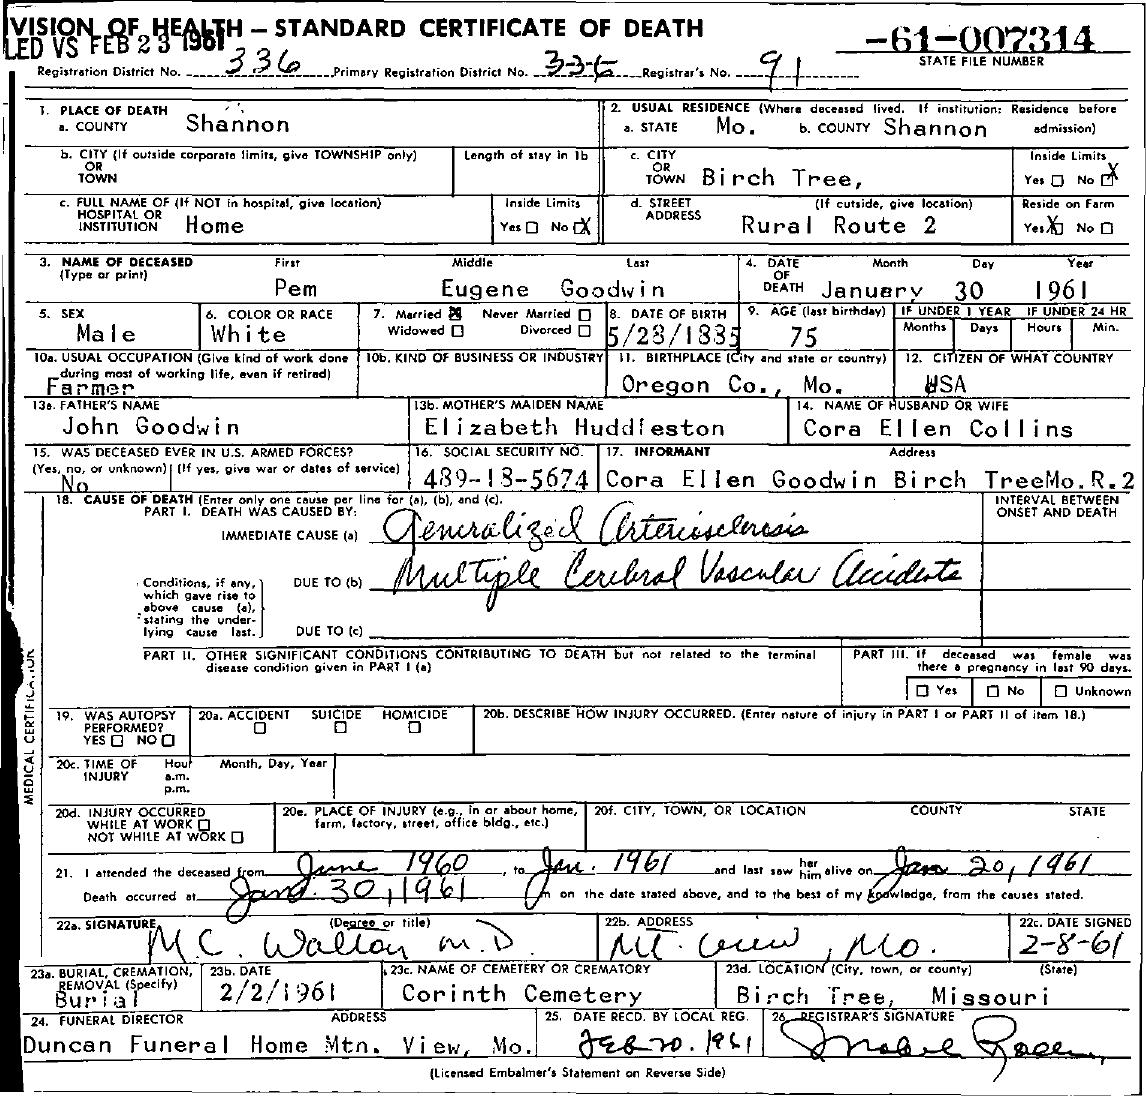 VISION OF HEALTH – STANDARD CERTIFICATE OF DEATH
LED VS FEB 23 1961
-61-007314
STATE FILE NUMBER
Registration District No. 336 Primary Registration District No. 336 Registrar's No. 91
1. PLACE OF DEATH
a. COUNTY Shannon
2. USUAL RESIDENCE (Where deceased lived. If institution: Residence before admission)
a. STATE Mo. b. COUNTY Shannon
b. CITY (If outside corporate limits, give TOWNSHIP only)
OR
TOWN
Length of stay in 1b
c. CITY
OR
TOWN Birch Tree,
Inside Limits
Yes □ No ☒
c. FULL NAME OF (If NOT in hospital, give location)
HOSPITAL OR
INSTITUTION Home
Inside Limits
Yes □ No ☒
d. STREET (If outside, give location)
ADDRESS Rural Route 2
Reside on Farm
Yes ☒ No □
3. NAME OF DECEASED First Middle Last
(Type or print)
Pem Eugene Goodwin
4. DATE Month Day Year
OF
DEATH January 30 1961
5. SEX
Male
6. COLOR OR RACE
White
7. Married ☒ Never Married □
Widowed □ Divorced □
8. DATE OF BIRTH
5/28/1885
9. AGE (last birthday)
75
IF UNDER 1 YEAR IF UNDER 24 HR
Months Days Hours Min.
10a. USUAL OCCUPATION (Give kind of work done
during most of working life, even if retired)
Farmer
10b. KIND OF BUSINESS OR INDUSTRY
11. BIRTHPLACE (City and state or country)
Oregon Co., Mo.
12. CITIZEN OF WHAT COUNTRY
USA
13a. FATHER'S NAME
John Goodwin
13b. MOTHER'S MAIDEN NAME
Elizabeth Huddleston
14. NAME OF HUSBAND OR WIFE
Cora Ellen Collins
15. WAS DECEASED EVER IN U.S. ARMED FORCES?
(Yes, no, or unknown) (If yes, give war or dates of service)
No
16. SOCIAL SECURITY NO.
489-18-5674
17. INFORMANT Address
Cora Ellen Goodwin Birch TreeMo.R.2
18. CAUSE OF DEATH (Enter only one cause per line for (a), (b), and (c).
PART I. DEATH WAS CAUSED BY:
INTERVAL BETWEEN
ONSET AND DEATH
IMMEDIATE CAUSE (a) Generalized Arteriosclerosis
Conditions, if any,
which gave rise to
above cause (a),
stating the under-
lying cause last.
DUE TO (b) Multiple Cerebral Vascular Accidents
DUE TO (c)
PART II. OTHER SIGNIFICANT CONDITIONS CONTRIBUTING TO DEATH but not related to the terminal
disease condition given in PART I (a)
PART III. If deceased was female was
there a pregnancy in last 90 days.
□ Yes □ No □ Unknown
MEDICAL CERTIFICATION
19. WAS AUTOPSY
PERFORMED?
YES □ NO □
20a. ACCIDENT SUICIDE HOMICIDE
□ □ □
20b. DESCRIBE HOW INJURY OCCURRED. (Enter nature of injury in PART I or PART II of item 18.)
20c. TIME OF Hour Month, Day, Year
INJURY a.m.
p.m.
20d. INJURY OCCURRED
WHILE AT WORK □
NOT WHILE AT WORK □
20e. PLACE OF INJURY (e.g., in or about home,
farm, factory, street, office bldg., etc.)
20f. CITY, TOWN, OR LOCATION COUNTY STATE
21. I attended the deceased from June 1960, to Jan. 1961 and last saw her him alive on Jan 20, 1961
Death occurred at Jan. 30, 1961 m on the date stated above, and to the best of my knowledge, from the causes stated.
22a. SIGNATURE (Degree or title)
M.C. Walton M.D
22b. ADDRESS
Mt. View, Mo.
22c. DATE SIGNED
2-8-61
23a. BURIAL, CREMATION,
REMOVAL (Specify)
Burial
23b. DATE
2/2/1961
23c. NAME OF CEMETERY OR CREMATORY
Corinth Cemetery
23d. LOCATION (City, town, or county) (State)
Birch Tree, Missouri
24. FUNERAL DIRECTOR ADDRESS
Duncan Funeral Home Mtn. View, Mo.
25. DATE RECD. BY LOCAL REG.
Feb 20. 1961
26. REGISTRAR'S SIGNATURE
Mabel
(Licensed Embalmer's Statement on Reverse Side)